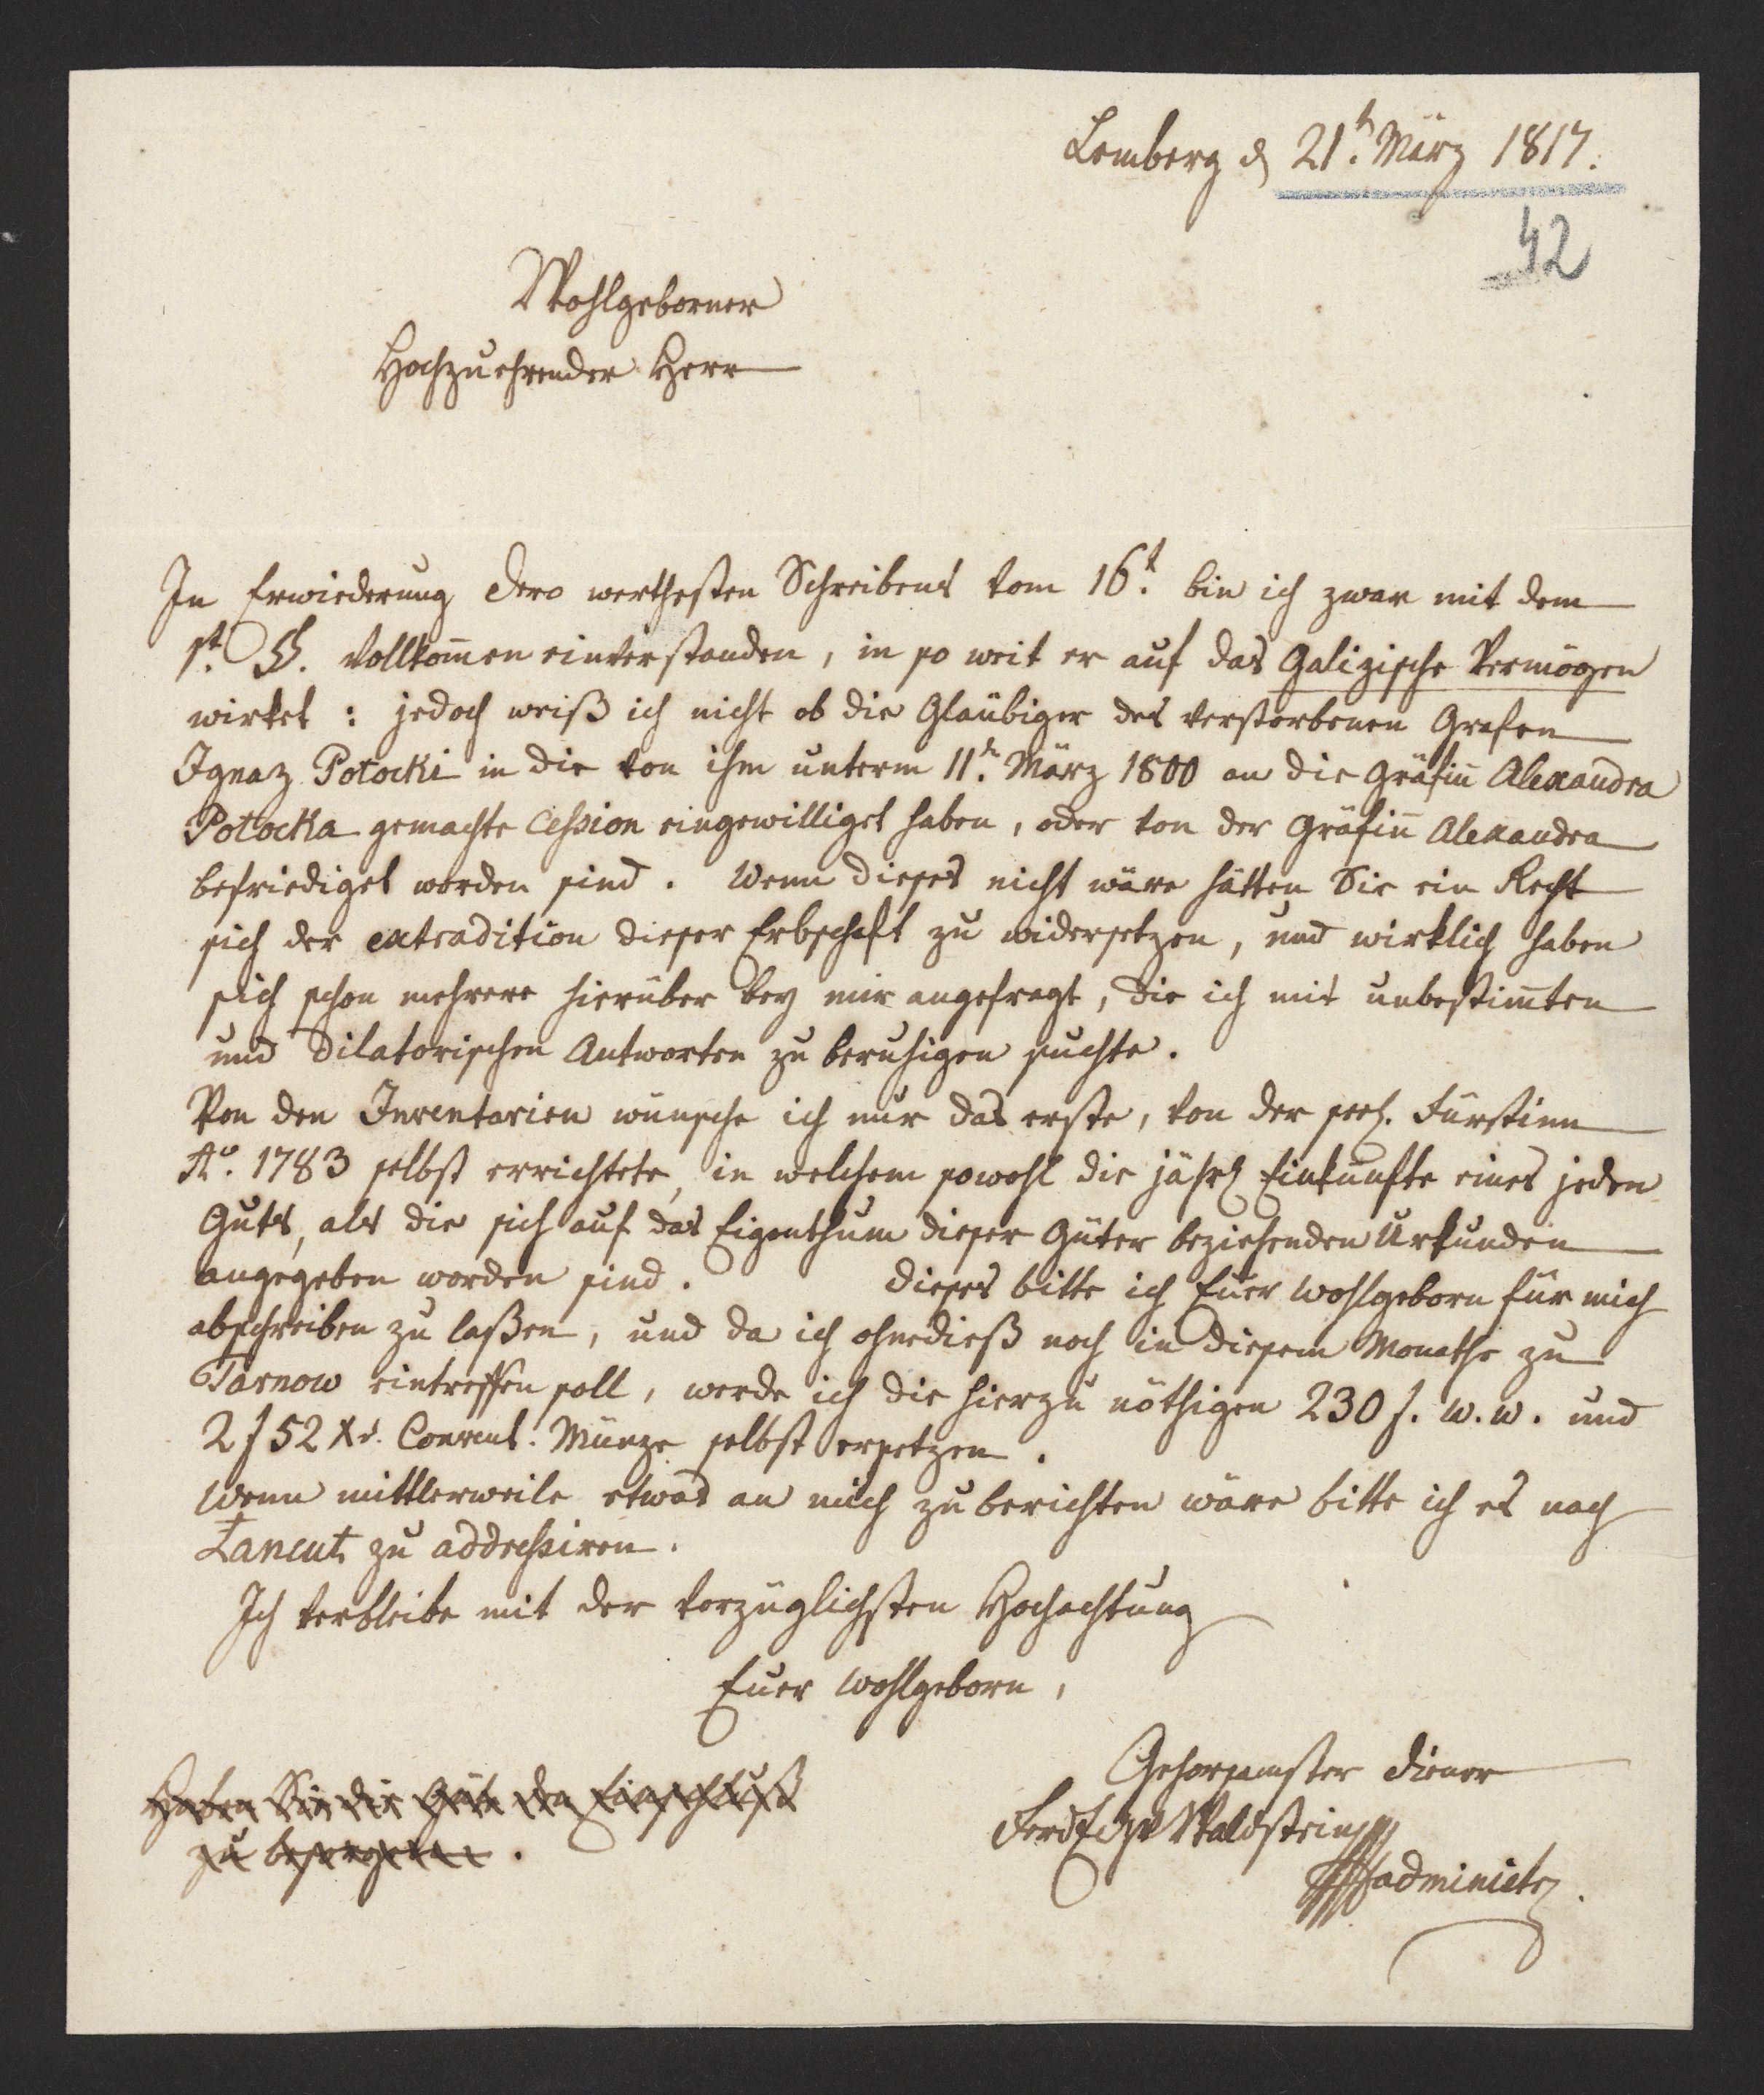 Lemberg d 21t. März 1817.
42
Wohlgeborner
Hochzuehrender Herr
In Erwiederung dero werthesten Schreibens vom 16t. bin ich zwar mit dem
1t. §. vollkom̅en einverstanden, in so weit er auf das Galizische Vermögen
wirket : jedoch weiß ich nicht ob die Glaübiger des verstorbenen Grafen
Ignaz Potocki in die von ihm unterm 11t. März 1800 an die Gräfin̅ Alexandra
Potocka gemachte Cession eingewilliget haben, oder von der Gräfin̅ Alexandra
befriediget worden sind. Wenn dieses nicht wäre hätten Sie ein Recht
sich der extradition dieser Erbschaft zu widersetzen, und wirklich haben
sich schon mehrere hierüber bey mir angefragt, die ich mit unbestim̅ten
und dilatorischen Antworten zu beruhigen suchte.
Von den Inventarien wünsche ich nur das erste, von der seel. Fürstinn
Ao. 1783 selbst errichtete, in welchem sowohl die jährl Einkünfte eines jeden
Guts, als die sich auf das Eigenthum dieser Güter beziehenden Urkunden
angegeben worden sind. Dieses bitte ich Euer Wohlgeborn für mich
abschreiben zu laßen, und da ich ohnedieß noch in diesem Monathe zu
Tarnow eintreffen soll, werde ich die hierzu nöthigen 230 f. W. W. und
2 f 52 Xr. Convent. Münze selbst ersetzen.
Wenn mittlerweile etwas an mich zu berichten wäre bitte ich es nach
Łancut zu addressiren.
Ich verbleibe mit der vorzüglichsten Hochachtung
Euer Wohlgeborn,
Gehorsamster Diener
Haben Sie die Güte den Einschluß
zu besorgen.
Ferd Waldstein
administr.